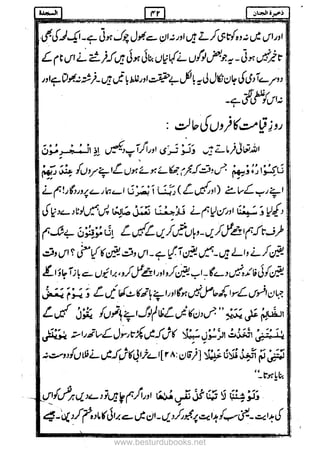 ذخیرة الجنان ۳۲ السجدة
اور اس میں نہ وہ کوتاہی کرتے ہیں اور نہ ان سے بھول چوک ہوتی ہے۔ ایک لمحہ کی بھی
تاخیر نہیں ہوتی۔ یہ جو بعض لوگوں نے کہانیاں بنائی ہوئی ہیں کہ فرشتے نے اس نام کے
دوسرے آدمی کی جان نکال لی یہ بالکل بے حقیقت اور غلط باتیں ہیں۔ فرشتہ نہ بھولتا ہے اور
نہ اس کو غلطی لگتی ہے۔
روزِ قیامت کافروں کی حالت :
اللہ تعالیٰ فرماتے ہیں وَلَوْ تَرٰٓى اور اگر آپ دیکھیں اِذِ الْمُجْرِمُوْنَ
نَاكِسُوْا رُءُوْسِهِمْ جس وقت کہ مجرم جھکائے ہوئے ہوں گے اپنے سروں کو عِنْدَ رَبِّهِمْ
اپنے رب کے سامنے (اور کہیں گے) رَبَّنَآ اَبْصَرْنَا اے ہمارے پروردگار! ہم نے
دیکھ لیا وَ سَمِعْنَا اور سن لیا ہم نے فَارْجِعْنَا نَعْمَلْ صَالِحًا پس ہمیں لوٹا دے دنیا کی
طرف تا کہ ہم اچھے عمل کریں۔ وہاں منتیں کریں گے کہیں گے اِنَّا مُوْقِنُوْنَ بے شک ہم
یقین کرنے والے ہیں۔ ہمیں یقین آ گیا ہے۔ اس وقت یقین کا کیا معنی؟ اس وقت
یقین کوئی فائدہ نہیں دے گا۔ اب یقین کرو اور اچھے عمل کرو، برائیوں سے باز آ جاؤ اگلے
جہان افسوس کے سوا کچھ حاصل نہیں ہوگا اور اپنے ہاتھ کاٹ کھائیں گے وَ يَوْمَ يَعَضُّ
الظَّالِمُ عَلٰى يَدَيْهِ "جس دن کاٹیں گے ظالم لوگ اپنے ہاتھوں کو يَقُوْلُ کہیں گے
يٰلَيْتَنِى اتَّخَذْتُ مَعَ الرَّسُوْلِ سَبِيْلًا کاش کہ میں پکڑتا رسول کے ساتھ راستہ يٰوَيْلَتٰى
لَيْتَنِىْ لَمْ اَتَّخِذْ فُلَانًا خَلِيْلًا [فرقان : ۲۸] اے خرابی کاش کہ میں نے فلاں کو دوست نہ
بنایا ہوتا۔"
وَلَوْ شِئْنَا لَاٰتَيْنَا كُلَّ نَفْسٍ هُدٰىهَا اور اگر ہم چاہیں تو دے دیں ہر نفس کو اس
کی ہدایت۔ یعنی سب کو ہدایت پر مجبور کر دیں۔ ان میں سے برائی کا مادہ ختم کر دیں۔ جیسے
www.besturdubooks.net